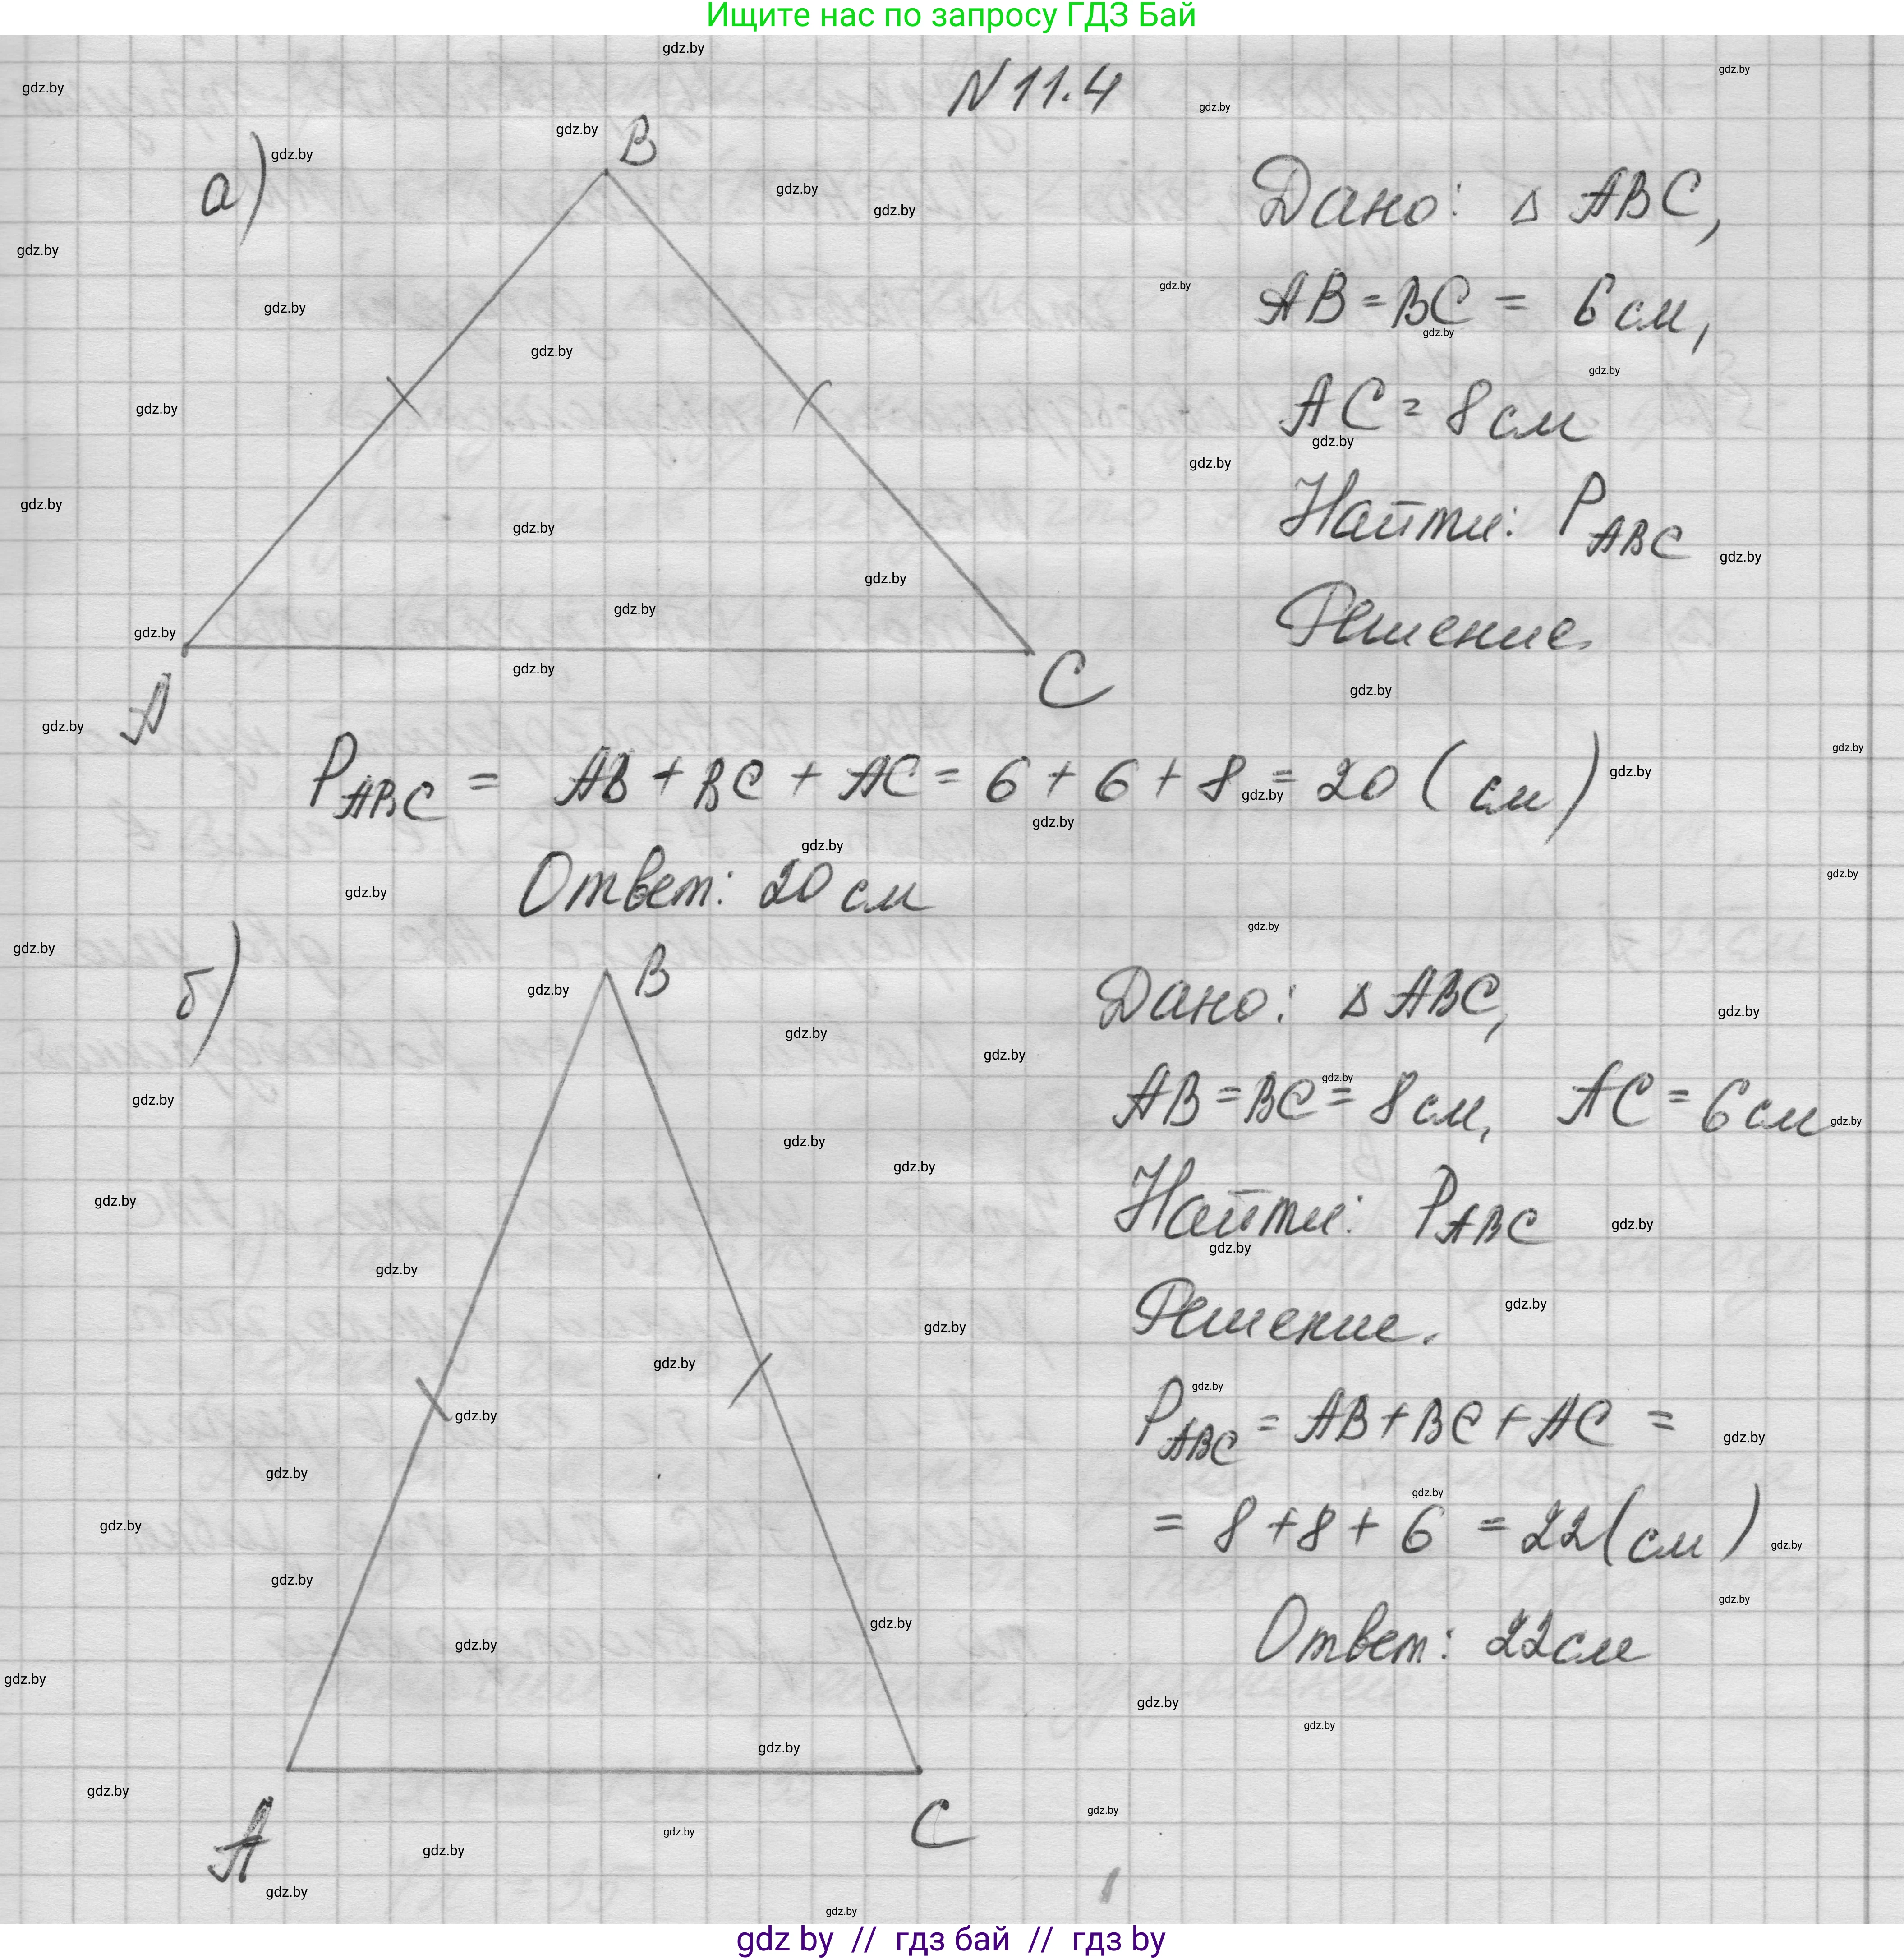 Ищите нас по запросу ГДЗ Бай
N 11.4
а)
B
A
C
Дано: △ ABC,
AB = BC = 6 см,
AC = 8 см
Найти: P ABC
Решение
P ABC = AB + BC + AC = 6 + 6 + 8 = 20 (см)
Ответ: 20 см
б)
B
A
C
Дано: △ ABC,
AB = BC = 8 см, AC = 6 см
Найти: P ABC
Решение.
P ABC = AB + BC + AC =
= 8 + 8 + 6 = 22 (см)
Ответ: 22 см
gdz by // гдз бай // гдз by